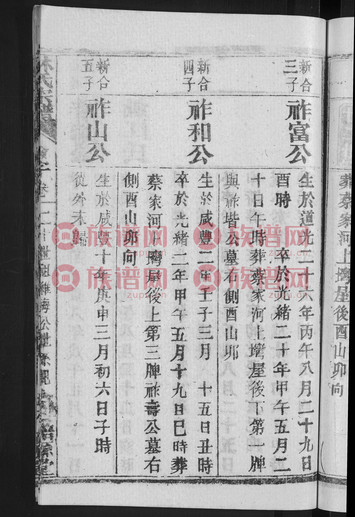 蔡家河上塆屋後酉山卯向
新合三子
祚富公
生於道光二十六年丙午八月二十九日
酉時 卒於光緒二十年甲午五月二
十日午時葬蔡家河上塆屋後下第一脾
與祚堦公墓右側酉山卯
新合四子
祚和公
生於咸豐二年壬子三月 十五日丑時
卒於光緒二年甲午五月十九日巳時葬
蔡家河塆屋後上第三脾祚壽公墓右
側酉山卯向
新合五子
祚山公
生於咸豐十年庚申三月初六日子時
從外未歸
族譜网